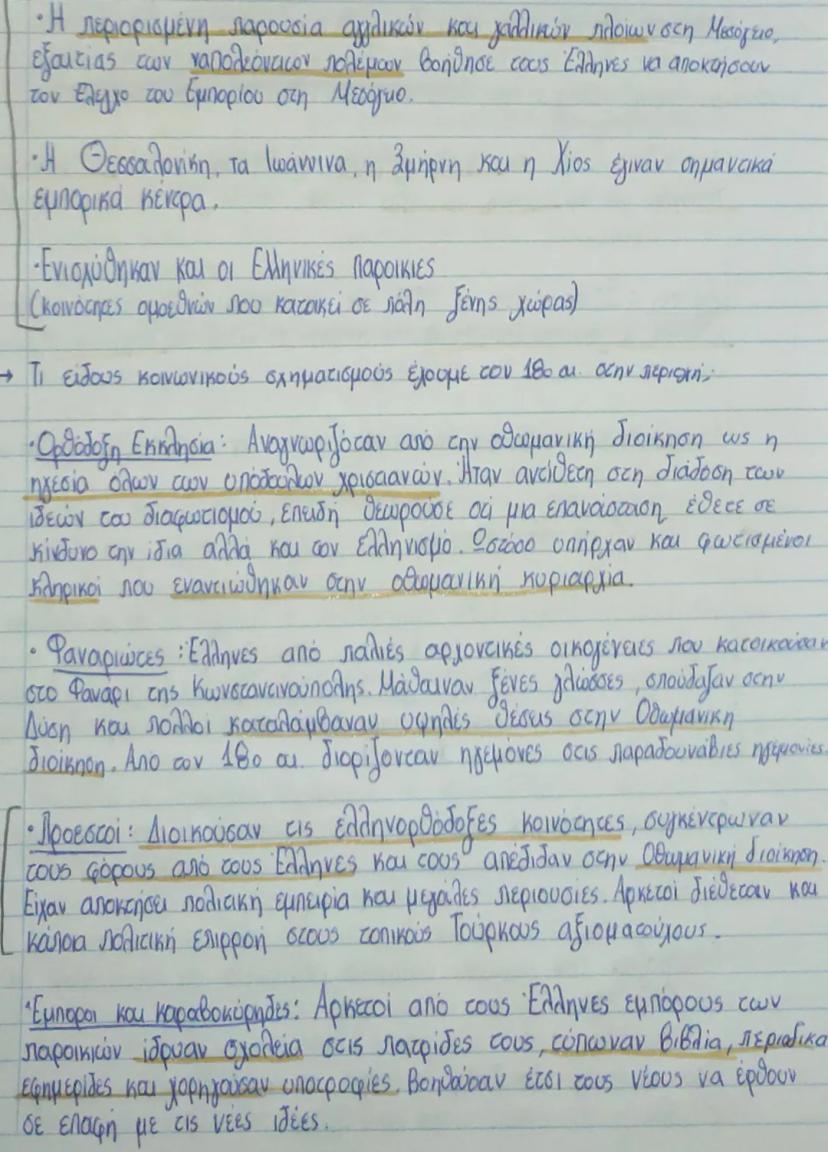 ·Η περιορισμένη παρουσία αγγλικών και γαλλικών πλοίων στη Μεσόγειο,
εξαιτίας των ναπολεόντειων πολέμων βοήθησε τους Έλληνες να αποκτήσουν
τον έλεγχο του εμπορίου στη Μεσόγειο.
·Η Θεσσαλονίκη, τα Ιωάννινα, η Σμήρνη και η Χίος έγιναν σημαντικά
εμπορικά κέντρα.
·Ενισχύθηκαν και οι Ελληνικές παροικίες
(κοινότητες ομοεθνών που κατοικεί σε πόλη ξένης χώρας)
→ Τι είδους κοινωνικούς σχηματισμούς έχουμε τον 18ο αι. στην περιοχή;
·Ορθόδοξη Εκκλησία: Αναγνωριζόταν από την οθωμανική διοίκηση ως η
ηγεσία όλων των υπόδουλων χριστιανών. Ήταν αντίθετη στη διάδοση των
ιδεών του διαφωτισμού, επειδή θεωρούσε ότι μια επανάσταση έθετε σε
κίνδυνο την ίδια αλλά και τον ελληνισμό. Ωστόσο υπήρχαν και φωτισμένοι
κληρικοί που εναντιώθηκαν στην οθωμανική κυριαρχία.
· Φαναριώτες: Έλληνες από παλιές αρχοντικές οικογένειες που κατοικούσαν
στο Φανάρι της Κωνσταντινούπολης. Μάθαιναν ξένες γλώσσες, σπούδαζαν στην
Δύση και πολλοί καταλάμβαναν υψηλές θέσεις στην Οθωμανική
διοίκηση. Από τον 18ο αι. διορίζονταν ηγεμόνες στις παραδουνάβιες ηγεμονίες.
·Προεστοί: Διοικούσαν τις ελληνορθόδοξες κοινότητες, συγκέντρωναν
τους φόρους από τους Έλληνες και τους απέδιδαν στην Οθωμανική διοίκηση.
Είχαν αποκτήσει πολιτική εμπειρία και μεγάλες περιουσίες. Αρκετοί διέθεταν και
κάποια πολιτική επιρροή στους τοπικούς Τούρκους αξιοματούχους.
·Έμποροι και καραβοκύρηδες: Αρκετοί από τους Έλληνες εμπόρους των
παροικιών ίδρυαν σχολεία στις πατρίδες τους, τύπωναν βιβλία, περιοδικά
εφημερίδες και χορηγούσαν υποτροφίες. Βοηθούσαν έτσι τους νέους να έρθουν
σε επαφή με τις νέες ιδέες.